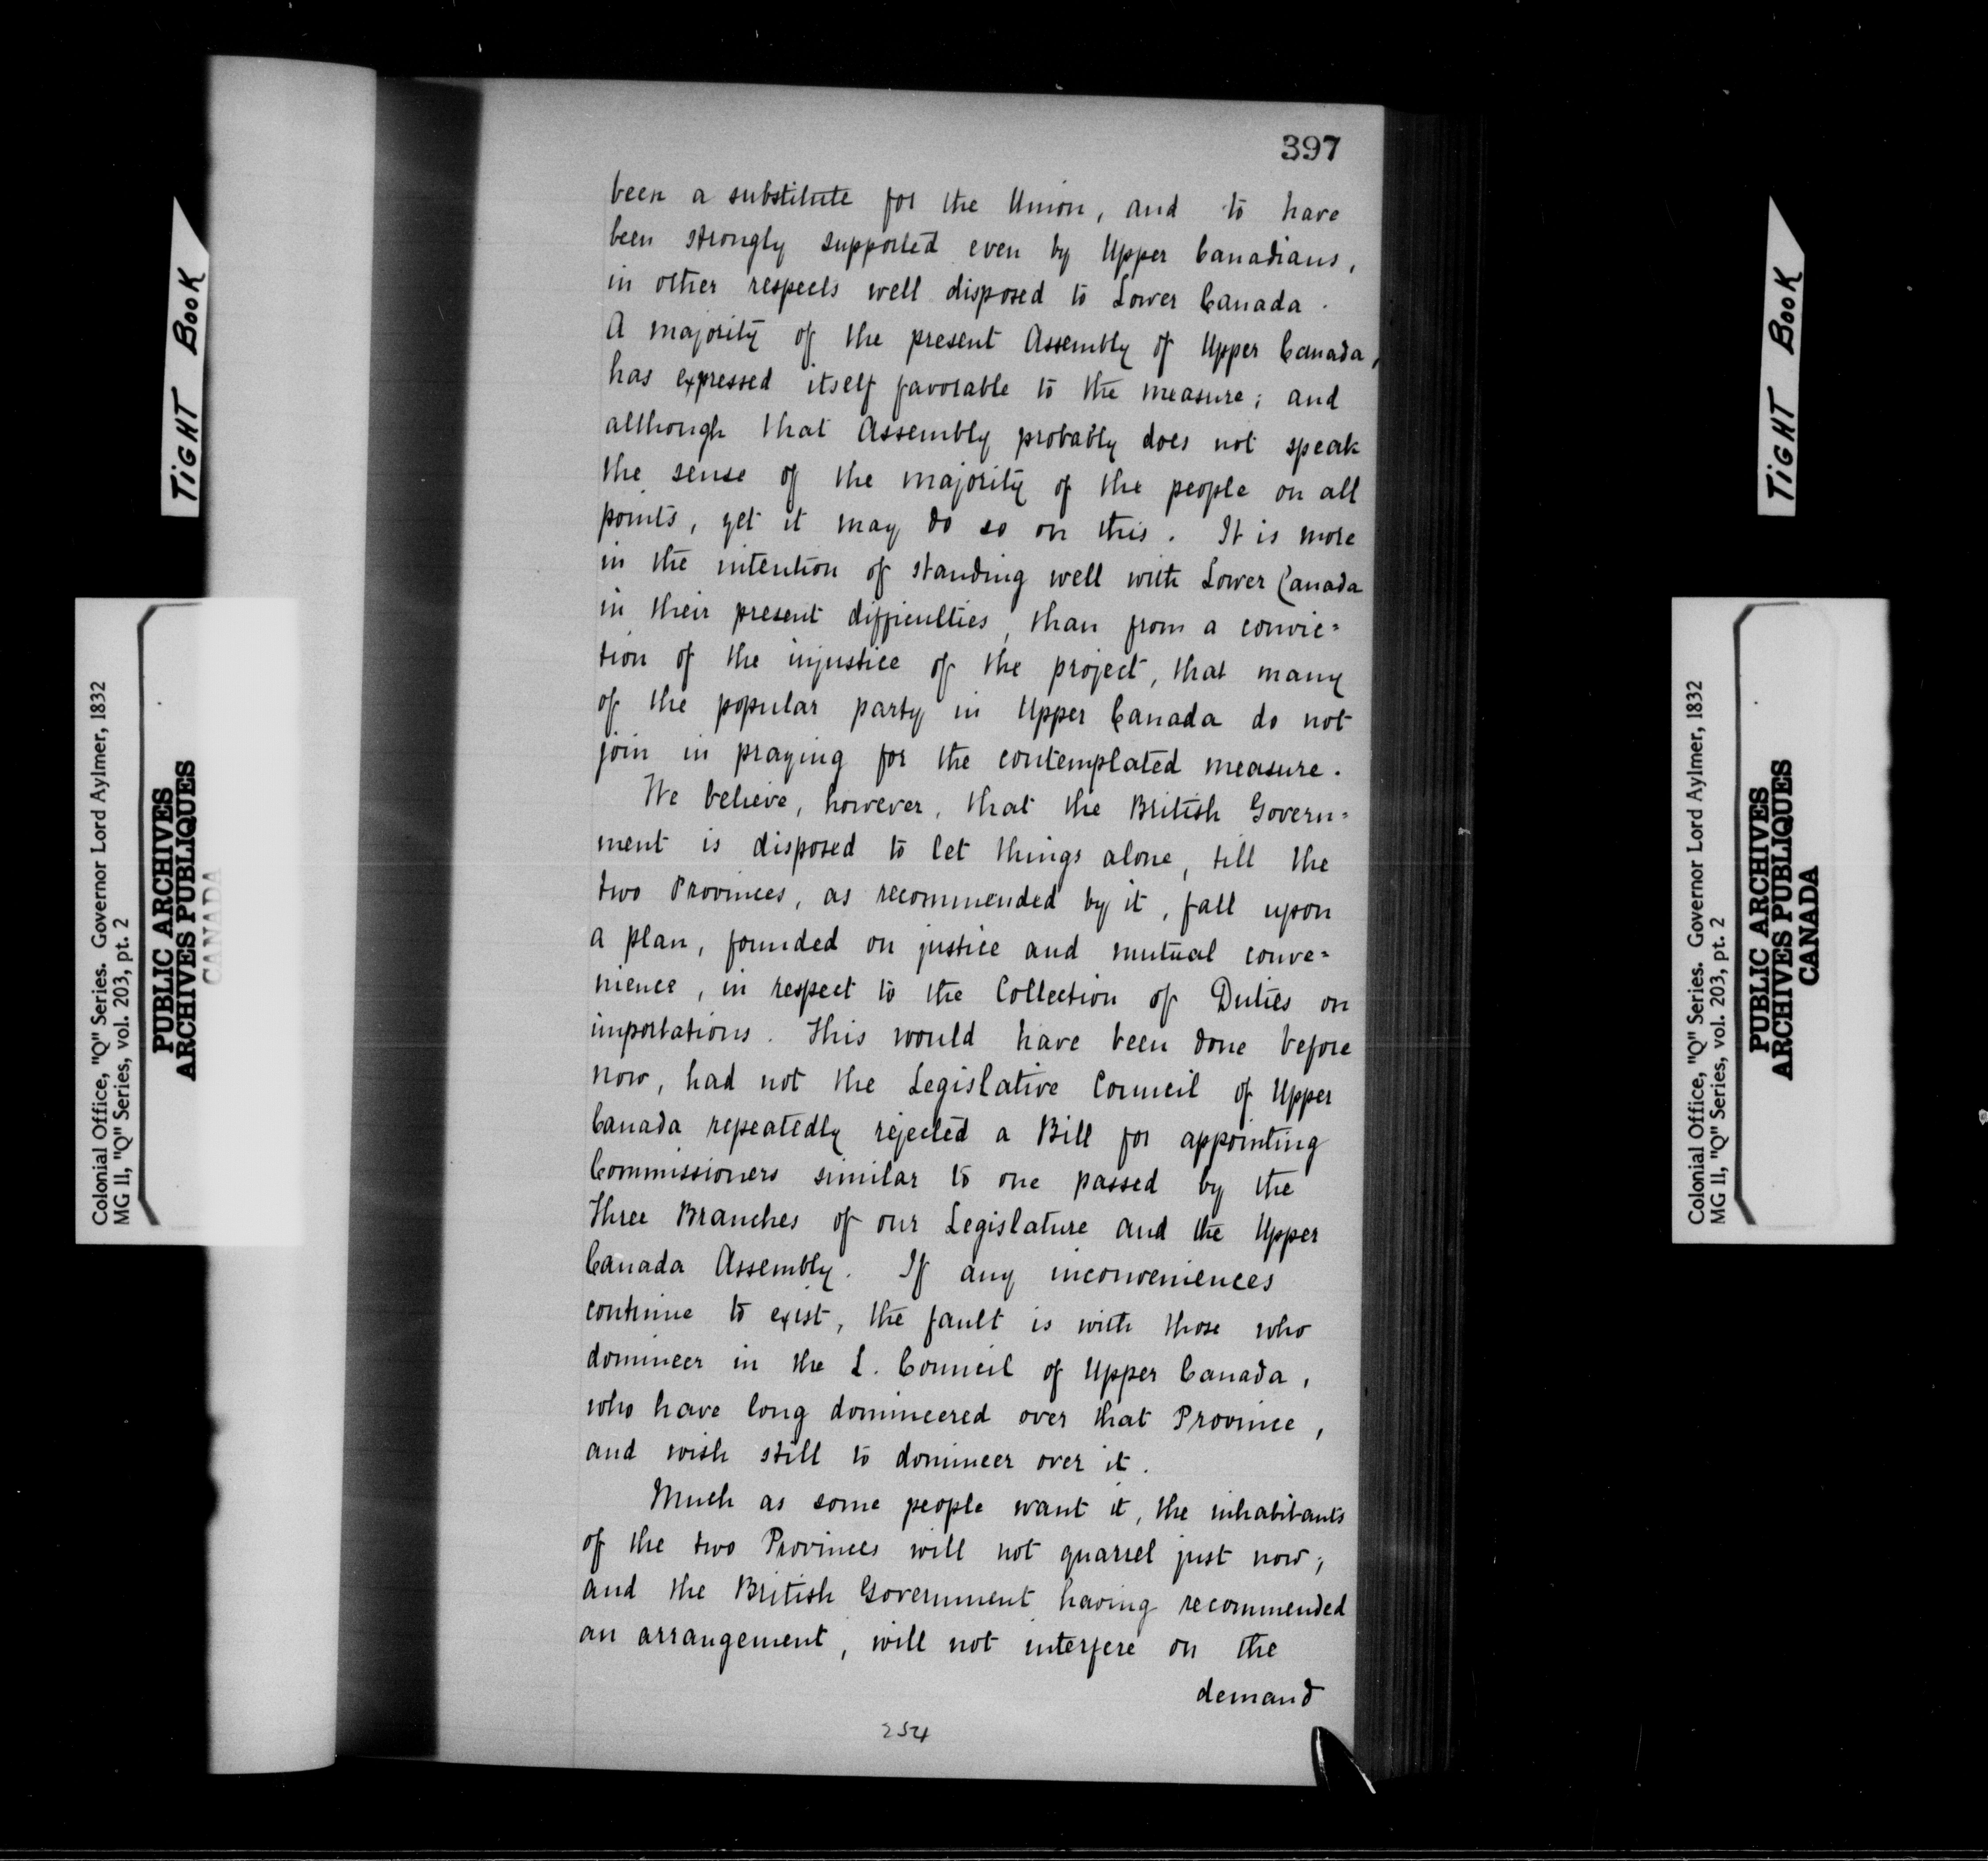 397
been a substitute for the Union, and to have
been strongly supported even by Upper Canadians,
in other respects well disposed to Lower Canada.
A majority of the present Assembly of Upper Canada,
has expressed itself favorable to the measure; and
although that Assembly probably does not speak
the sense of the majority of the people on all
points, yet it may do so on this. It is more
in the intention of standing well with Lower Canada
in their present difficulties, than from a convic=
tion of the injustice of the project, that many
of the popular party in Upper Canada do not
join in praying for the contemplated measure.
We believe, however, that the British Govern=
ment is disposed to let things alone, till the
two Provinces, as recommended by it, fall upon
a plan, founded on justice and mutual conve=
nience, in respect to the Collection of Duties on
importations. This would have been done before
now, had not the Legislative Council of Upper
Canada repeatedly rejected a Bill for appointing
Commissioners similar to one passed by the
Three Branches of our Legislature and the Upper
Canada Assembly. If any inconveniences
continue to exist, the fault is with those who
domineer in the L. Council of Upper Canada,
who have long domineered over that Province,
and wish still to domineer over it.
Much as some people want it, the inhabitants
of the two Provinces will not quarrel just now;
and the British Government having recommended
an arrangement, will not interfere on the
demand
254
TIGHT BOOK
Colonial Office, "Q" Series. Governor Lord Aylmer, 1832
MG 11, "Q" Series, vol. 203, pt. 2
PUBLIC ARCHIVES
ARCHIVES PUBLIQUES
CANADA
TIGHT BOOK
Colonial Office, "Q" Series. Governor Lord Aylmer, 1832
MG 11, "Q" Series, vol. 203, pt. 2
PUBLIC ARCHIVES
ARCHIVES PUBLIQUES
CANADA